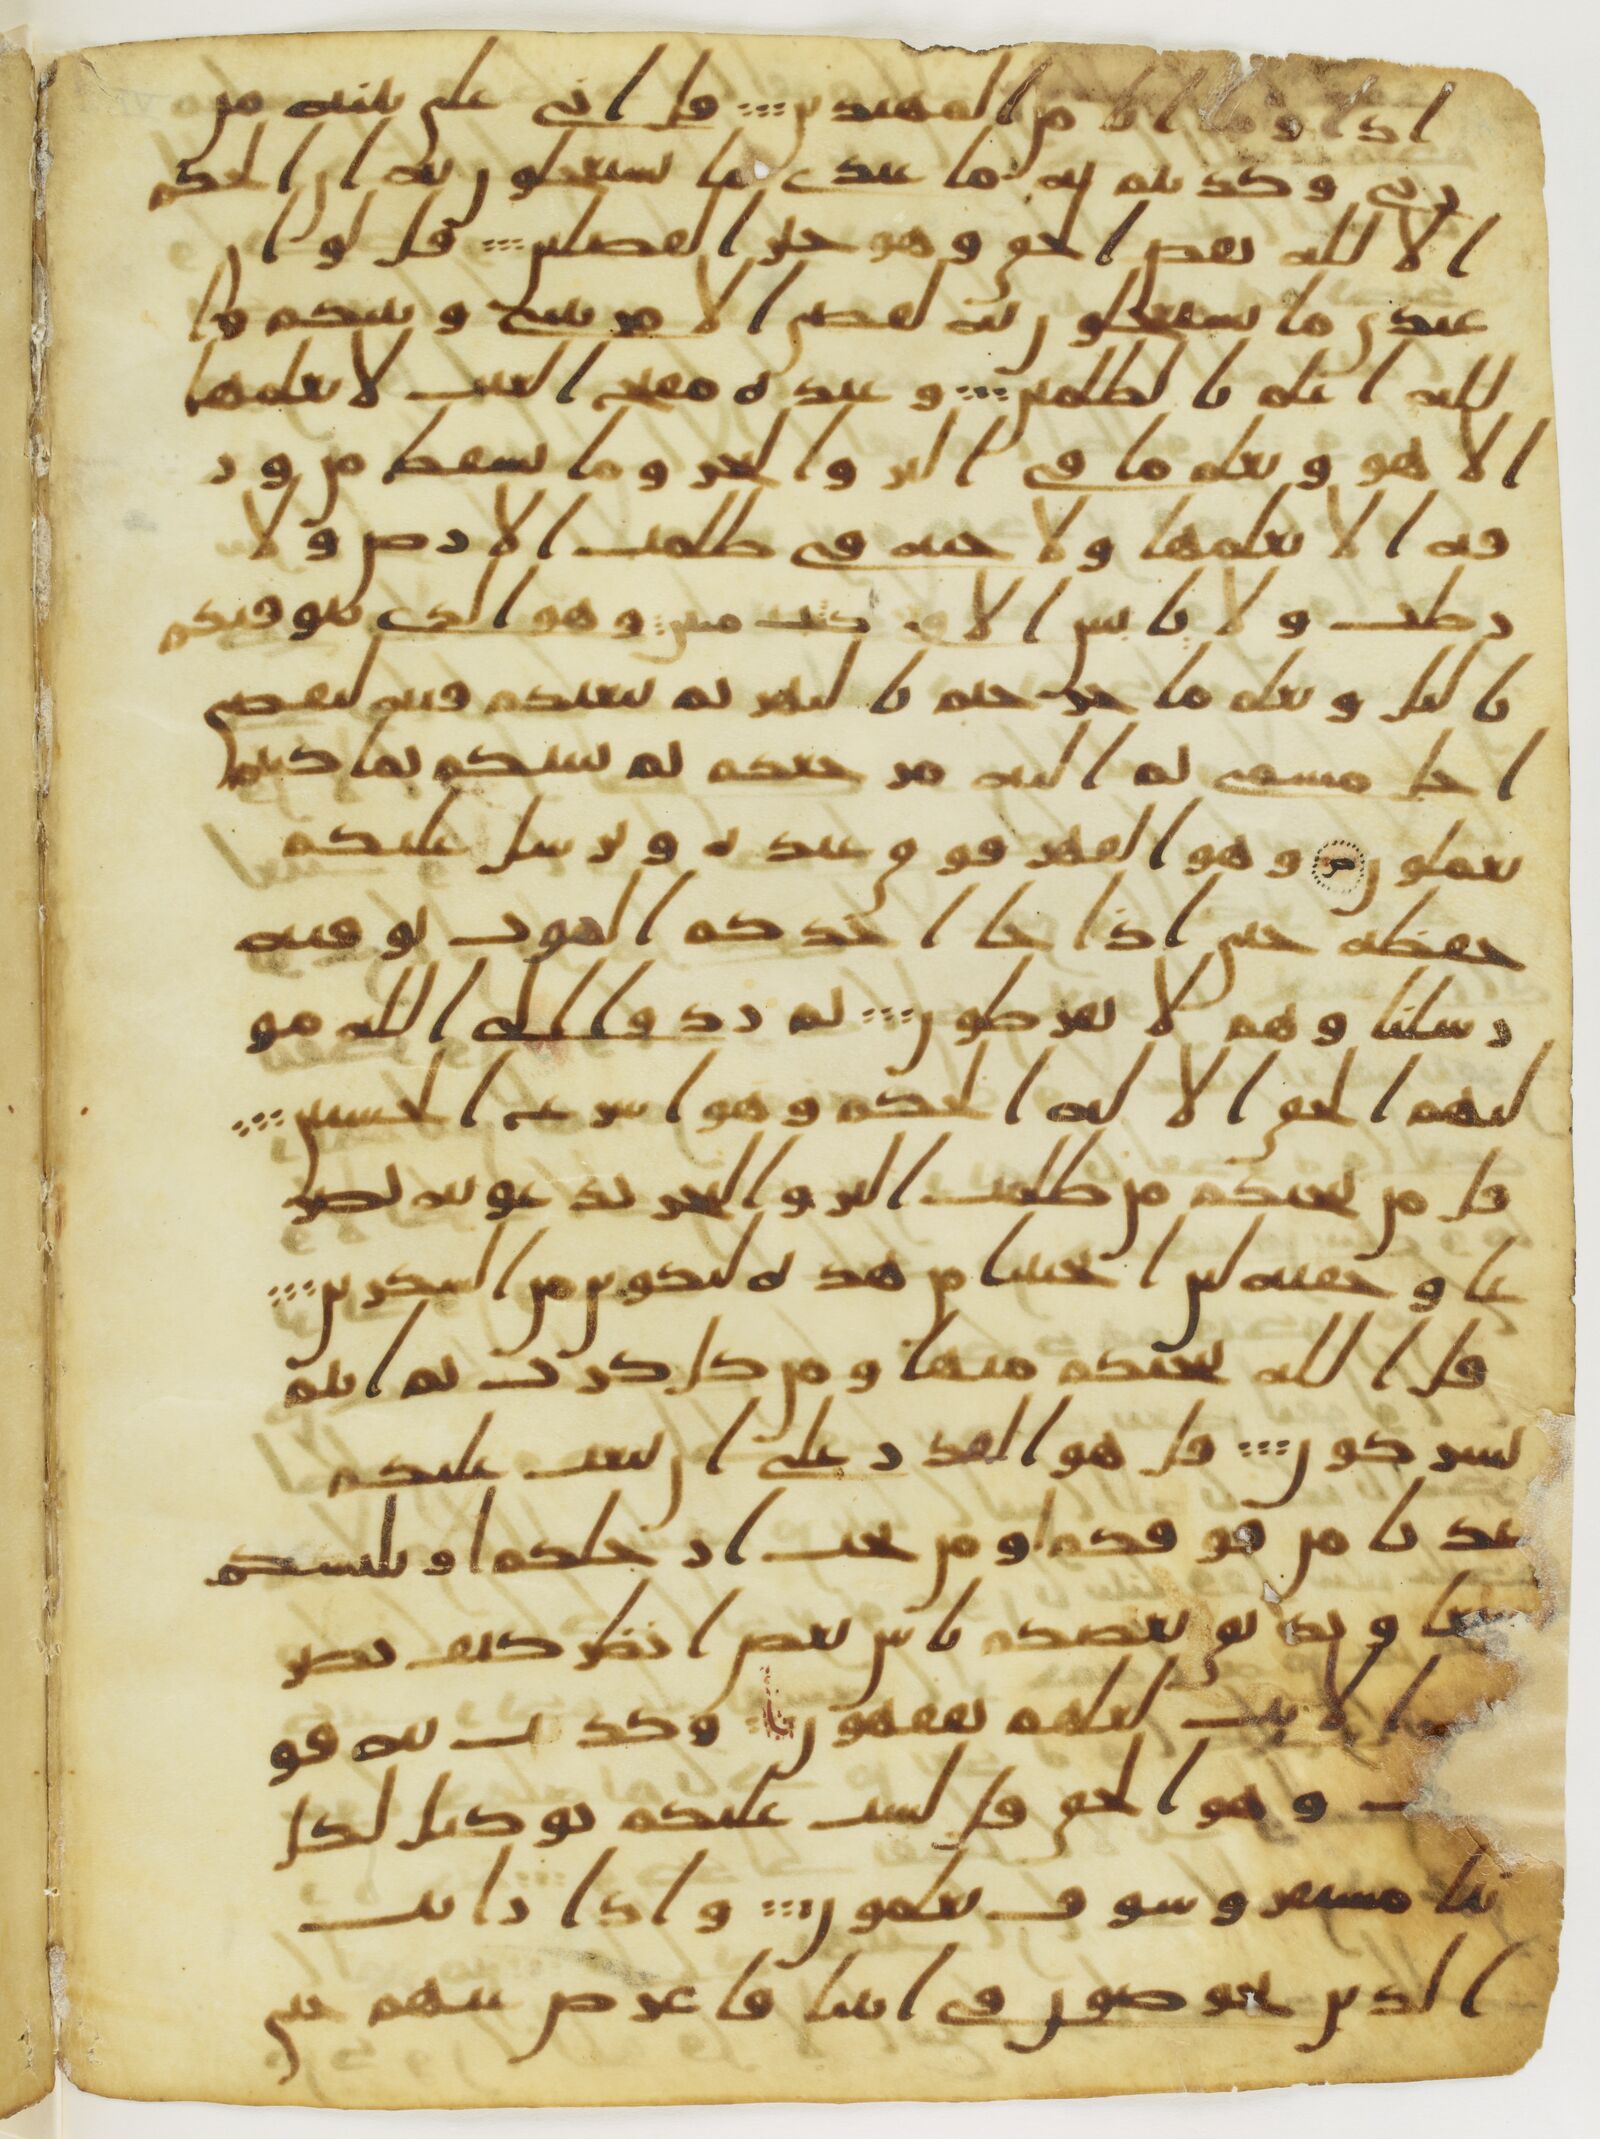 اذا وما انا من المهتدين قل اني على بينه من
ربي وكذبتم به ما عندي ما تستعجلون به ان الحكم
الا لله يقص الحق وهو خير الفصلين قل لو ان
عندي ما تستعجلون به لقضي الامر بيني وبينكم وا
لله اعلم بالظلمين وعنده مفتح الغيب لا يعلمها
الا هو ويعلم ما في البر والبحر وما تسقط من ور
قه الا يعلمها ولا حبه في ظلمت الارض ولا
رطب ولا يابس الا في كتب مبين وهو الذي يتوفيكم
باليل ويعلم ما جرحتم بالنهر ثم يبعثكم فيه ليقضى
اجل مسمى ثم اليه مرجعكم ثم ينبيكم بما كنتم
تعملون وهو القهر فوق عبده ويرسل عليكم
حفظه حتى اذا جا احدكم الموت توفته
رسلنا وهم لا يفرطون ثم ردوا الى الله مو
ليهم الحق الا له الحكم وهو اسرع الحسبين
قل من ينجيكم من ظلمت البر والبحر تدعونه تضر
عا وخفيه لين انجيتنا من هذه لنكونن من الشكرين
قل الله ينجيكم منها ومن كل كرب ثم انتم
تشركون قل هو القدر على ان يبعث عليكم
عذبا من فوقكم او من تحت ارجلكم او يلبسكم
شيعا ويذيق بعضكم باس بعض انظر كيف نصر
ف الايت لعلهم يفقهون وكذب به قو
وهو الحق قل لست عليكم بوكيل لكل
نبا مستقر وسوف تعلمون واذا رايت
الذين يخوضون في ايتنا فاعرض عنهم حتى